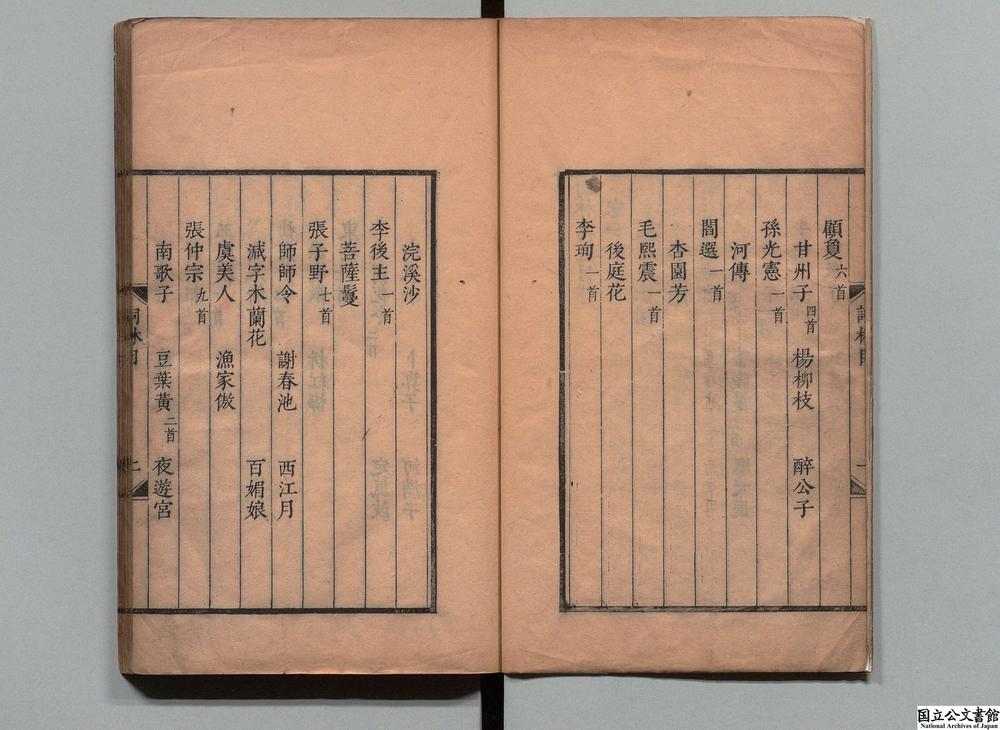 顧敻六首
甘州子四首　楊柳枝　醉公子
孫光憲一首
河傳
閻選一首
杏園芳
毛熙震一首
後庭花
李珣一首
浣溪沙
李後主一首
菩薩鬘
張子野七首
師師令　謝春池　西江月
減字木蘭花　百媚娘
虞美人　漁家傲
張仲宗九首
南歌子　豆葉黃二首　夜遊宮
国立公文書館
National Archives of Japan